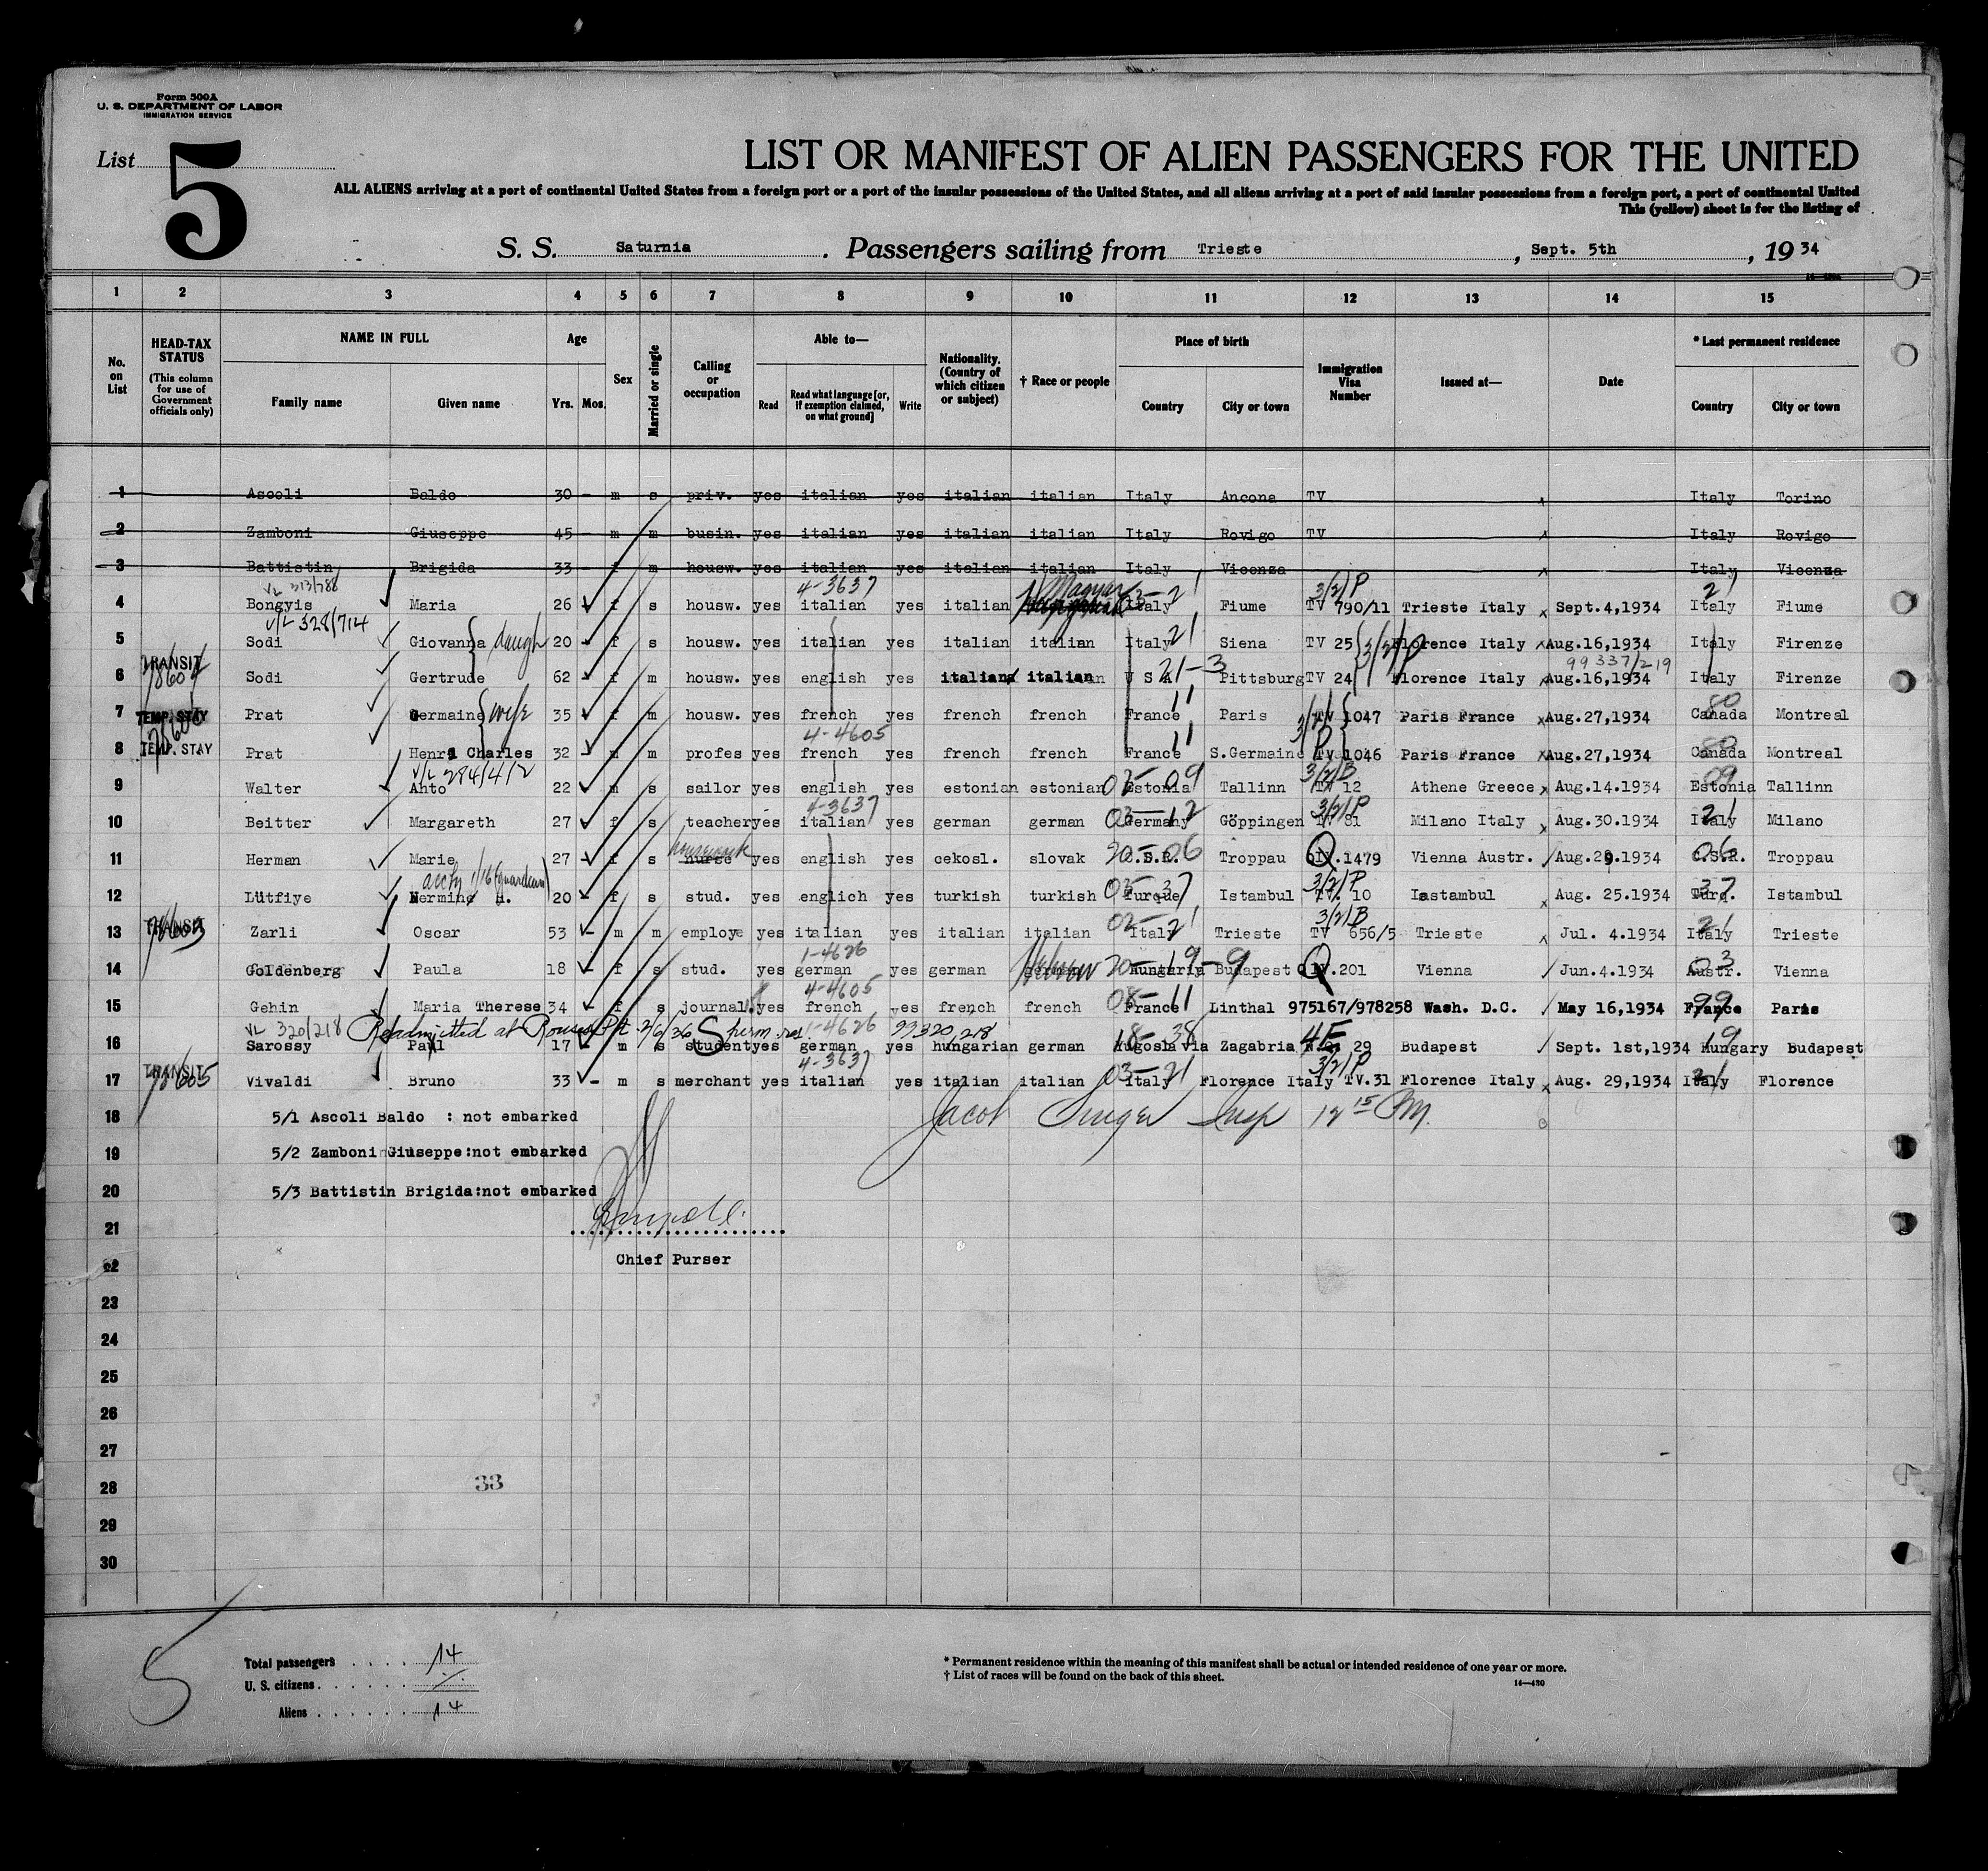 Form 500A
U. S. DEPARTMENT OF LABOR
IMMIGRATION SERVICE
List 5
LIST OR MANIFEST OF ALIEN PASSENGERS FOR THE UNITED
ALL ALIENS arriving at a port of continental United States from a foreign port or a port of the insular possessions of the United States, and all aliens arriving at a port of said insular possessions from a foreign port, a port of continental United
This (yellow) sheet is for the listing of
S. S. Saturnia. Passengers sailing from Trieste, Sept. 5th, 1934
1 2 3 4 5 6 7 8 9 10 11 12 13 14 15
No. on List
HEAD-TAX STATUS (This column for use of Government officials only)
NAME IN FULL Family name Given name
Age Yrs. Mos.
Sex
Married or single
Calling or occupation
Able to— Read Read what language [or, if exemption claimed, on what ground] Write
Nationality. (Country of which citizen or subject)
† Race or people
Place of birth Country City or town
Immigration Visa Number
Issued at—
Date
* Last permanent residence Country City or town
1 Ascoli Baldo 30 - m s priv. yes italian yes italian italian Italy Ancona TV Italy Torino
2 Zamboni Giuseppe 45 - m m busin. yes italian yes italian italian Italy Rovigo TV Italy Rovigo
3 Battistin Brigida 33 - f m housw. yes italian yes italian italian Italy Vicenza Italy Vicenza
VL 313/788 4-3637 Magyar 3/2/P
4 Bongyis Maria 26 f s housw. yes italian yes italian Italy Fiume TV 790/11 Trieste Italy x Sept.4,1934 Italy Fiume
V/L 328/714
5 Sodi Giovanna daugh 20 f s housw. yes italian yes italian italian Italy 21 Siena TV 25 3/2/P Florence Italy x Aug.16,1934 Italy Firenze
TRANSIT 21-3 99337/219
6 Sodi Gertrude 62 f m housw. yes english yes italian italian U S A Pittsburg TV 24 Florence Italy x Aug.16,1934 Italy Firenze
TEMP. STAY
7 Prat Germaine wife 35 f m housw. yes french yes french french France 11 Paris TV 1047 Paris France x Aug.27,1934 Canada 80 Montreal
TEMP. STAY 4-4605
8 Prat Henri Charles 32 m m profes yes french yes french french France 11 S.Germaine TV 1046 Paris France x Aug.27,1934 Canada 80 Montreal
V/L 284/412 3/2/B
9 Walter Ahto 22 m s sailor yes english yes estonian estonian Estonia Tallinn TV 12 Athene Greece x Aug.14.1934 Estonia 09 Tallinn
4-3637 03-12 3/2/P
10 Beitter Margareth 27 f s teacher yes italian yes german german Germany Göppingen TV 81 Milano Italy x Aug.30.1934 Italy 21 Milano
housework 20-06
11 Herman Marie 27 f s nurse yes english yes cekosl. slovak C.S.R. Troppau QIV.1479 Vienna Austr. / Aug.29.1934 C.S.R. 06 Troppau
05-37 3/2/P
12 Lütfiye Nermine H. 20 f s stud. yes englich yes turkish turkish Turque Istambul TV. 10 Iastambul x Aug. 25.1934 Turq. 37 Istambul
TRANSIT 02-21 3/2/B
13 Zarli Oscar 53 - m m employe yes italian yes italian italian Italy Trieste TV 656/5 Trieste Jul. 4.1934 Italy 21 Trieste
1-4626 Hebrew
14 Goldenberg Paula 18 f s stud. yes german yes german german Hungaria Budapest QIV.201 Vienna / Jun.4.1934 Austr. 03 Vienna
4-4605 08-11
15 Gehin Maria Therese 34 f s journal. yes french yes french french France Linthal 975167/978258 Wash. D.C. / May 16,1934 France 99 Paris
VL 320/218 Readmitted at Rouses Pt 2/6/36 perm. res. 1-4626 99320/218 18-38 4E
16 Sarossy Paul 17 - m s student yes german yes hungarian german Yugoslavia Zagabria 29 Budapest / Sept. 1st,1934 Hungary 19 Budapest
TRANSIT 78605 4-3637 03-21 3/2/P
17 Vivaldi Bruno 33 - m s merchant yes italian yes italian italian Italy Florence Italy TV.31 Florence Italy x Aug. 29,1934 Italy 21 Florence
18 5/1 Ascoli Baldo : not embarked Jacob Singer Insp 12 15 PM.
19 5/2 Zamboni Giuseppe:not embarked
20 5/3 Battistin Brigida:not embarked
21
22 Chief Purser
23
24
25
26
27
28 33
29
30
5
Total passengers 14
U. S. citizens
Aliens 14
* Permanent residence within the meaning of this manifest shall be actual or intended residence of one year or more.
† List of races will be found on the back of this sheet.
14—430